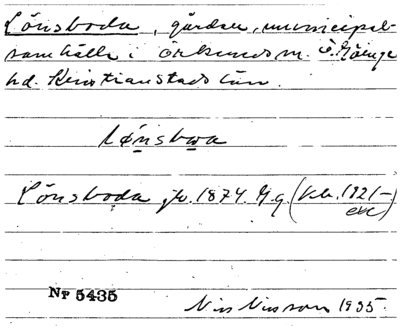 Lönsboda, gårdar, municipal-
samhälle i Örkeneds sn. Ö. Göinge
hd. Kristianstads län.
lønsbwa
Lönsboda jb. 1874. G.g. (Kb. 1821–
etc)
Nº 5435
Nils Nilsson 1935.